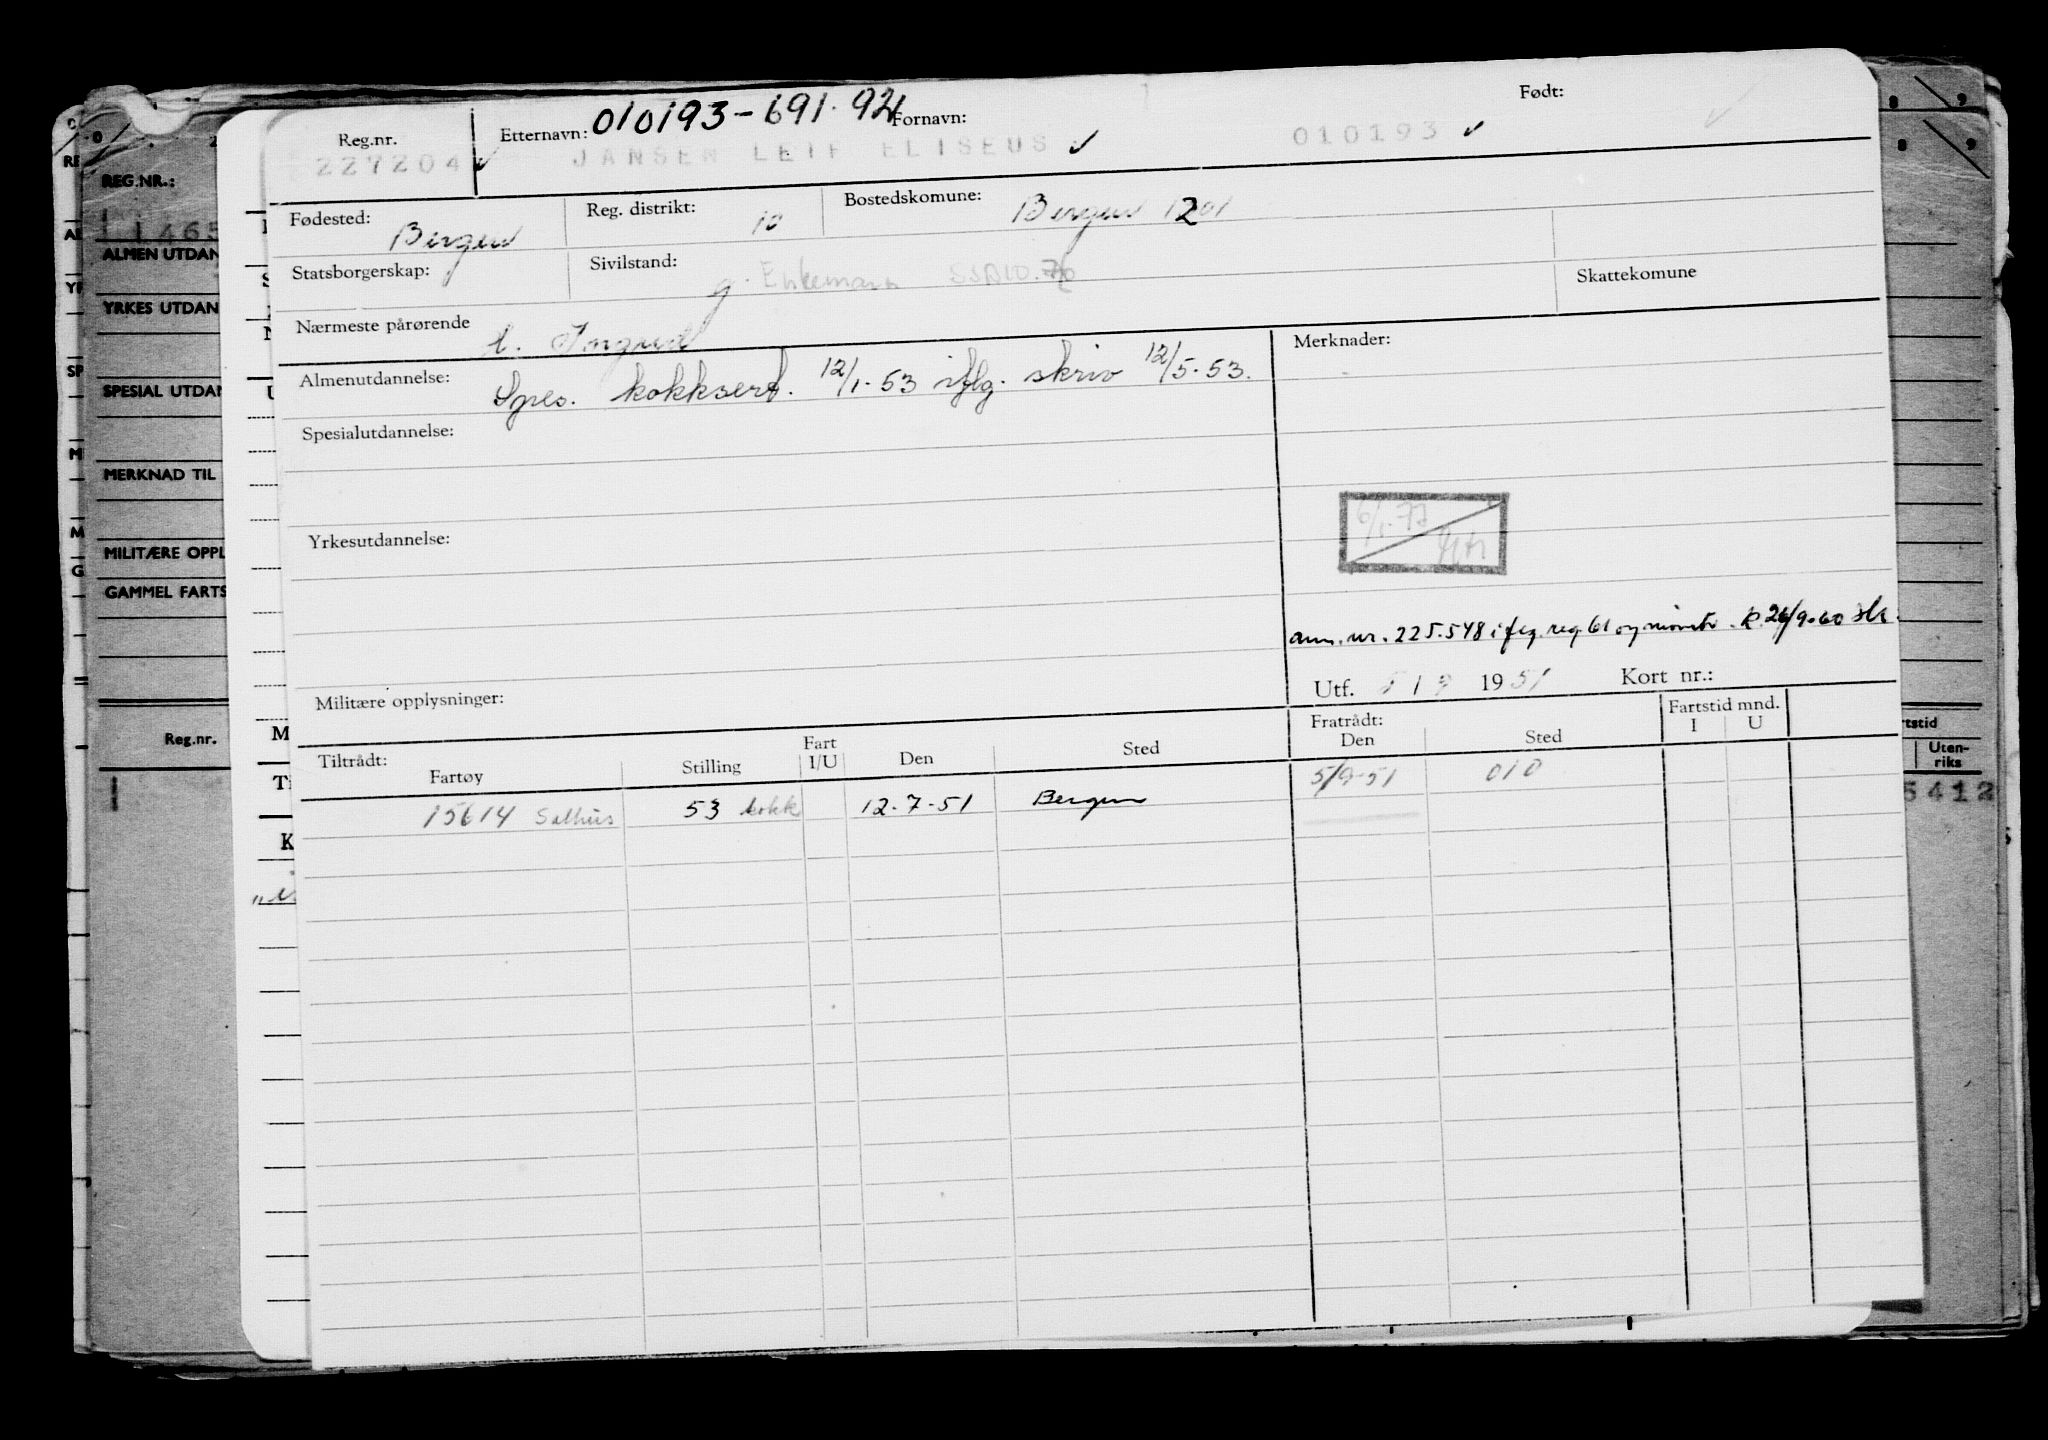 010193-691.92
Reg.nr. Etternavn: Fornavn: Født:
227204 JANSEN LEIF ELISEUS 010193
Fødested: Bergen Reg. distrikt: 10 Bostedskomune: Bergen 1201
Statsborgerskap: Sivilstand: g. Enkemann Skattekomune
Nærmeste pårørende
Almenutdannelse: Spes. kokksert. 12/1-53 iflg. skriv 12/5-53.
Merknader:
Spesialutdannelse:
6/1-77
Yrkesutdannelse:
ann. nr. 225.548 iflg. reg.bl og mønstr. k. 26/9-60
Militære opplysninger:
Utf. 5/9 1951 Kort nr.:
Tiltrådt: Fratrådt: Fartstid mnd.
Fartøy Stilling Fart I/U Den Sted Den Sted I U
15614 Salhus 53 kokk 12-7-51 Bergen 5/9-51 010
REG.NR.:
ALMEN UTDAN
YRKES UTDAN
SPESIAL UTDAN
MERKNAD TIL
MILITÆRE OPPL
GAMMEL FARTS
Reg.nr.
Uten-
riks
5412